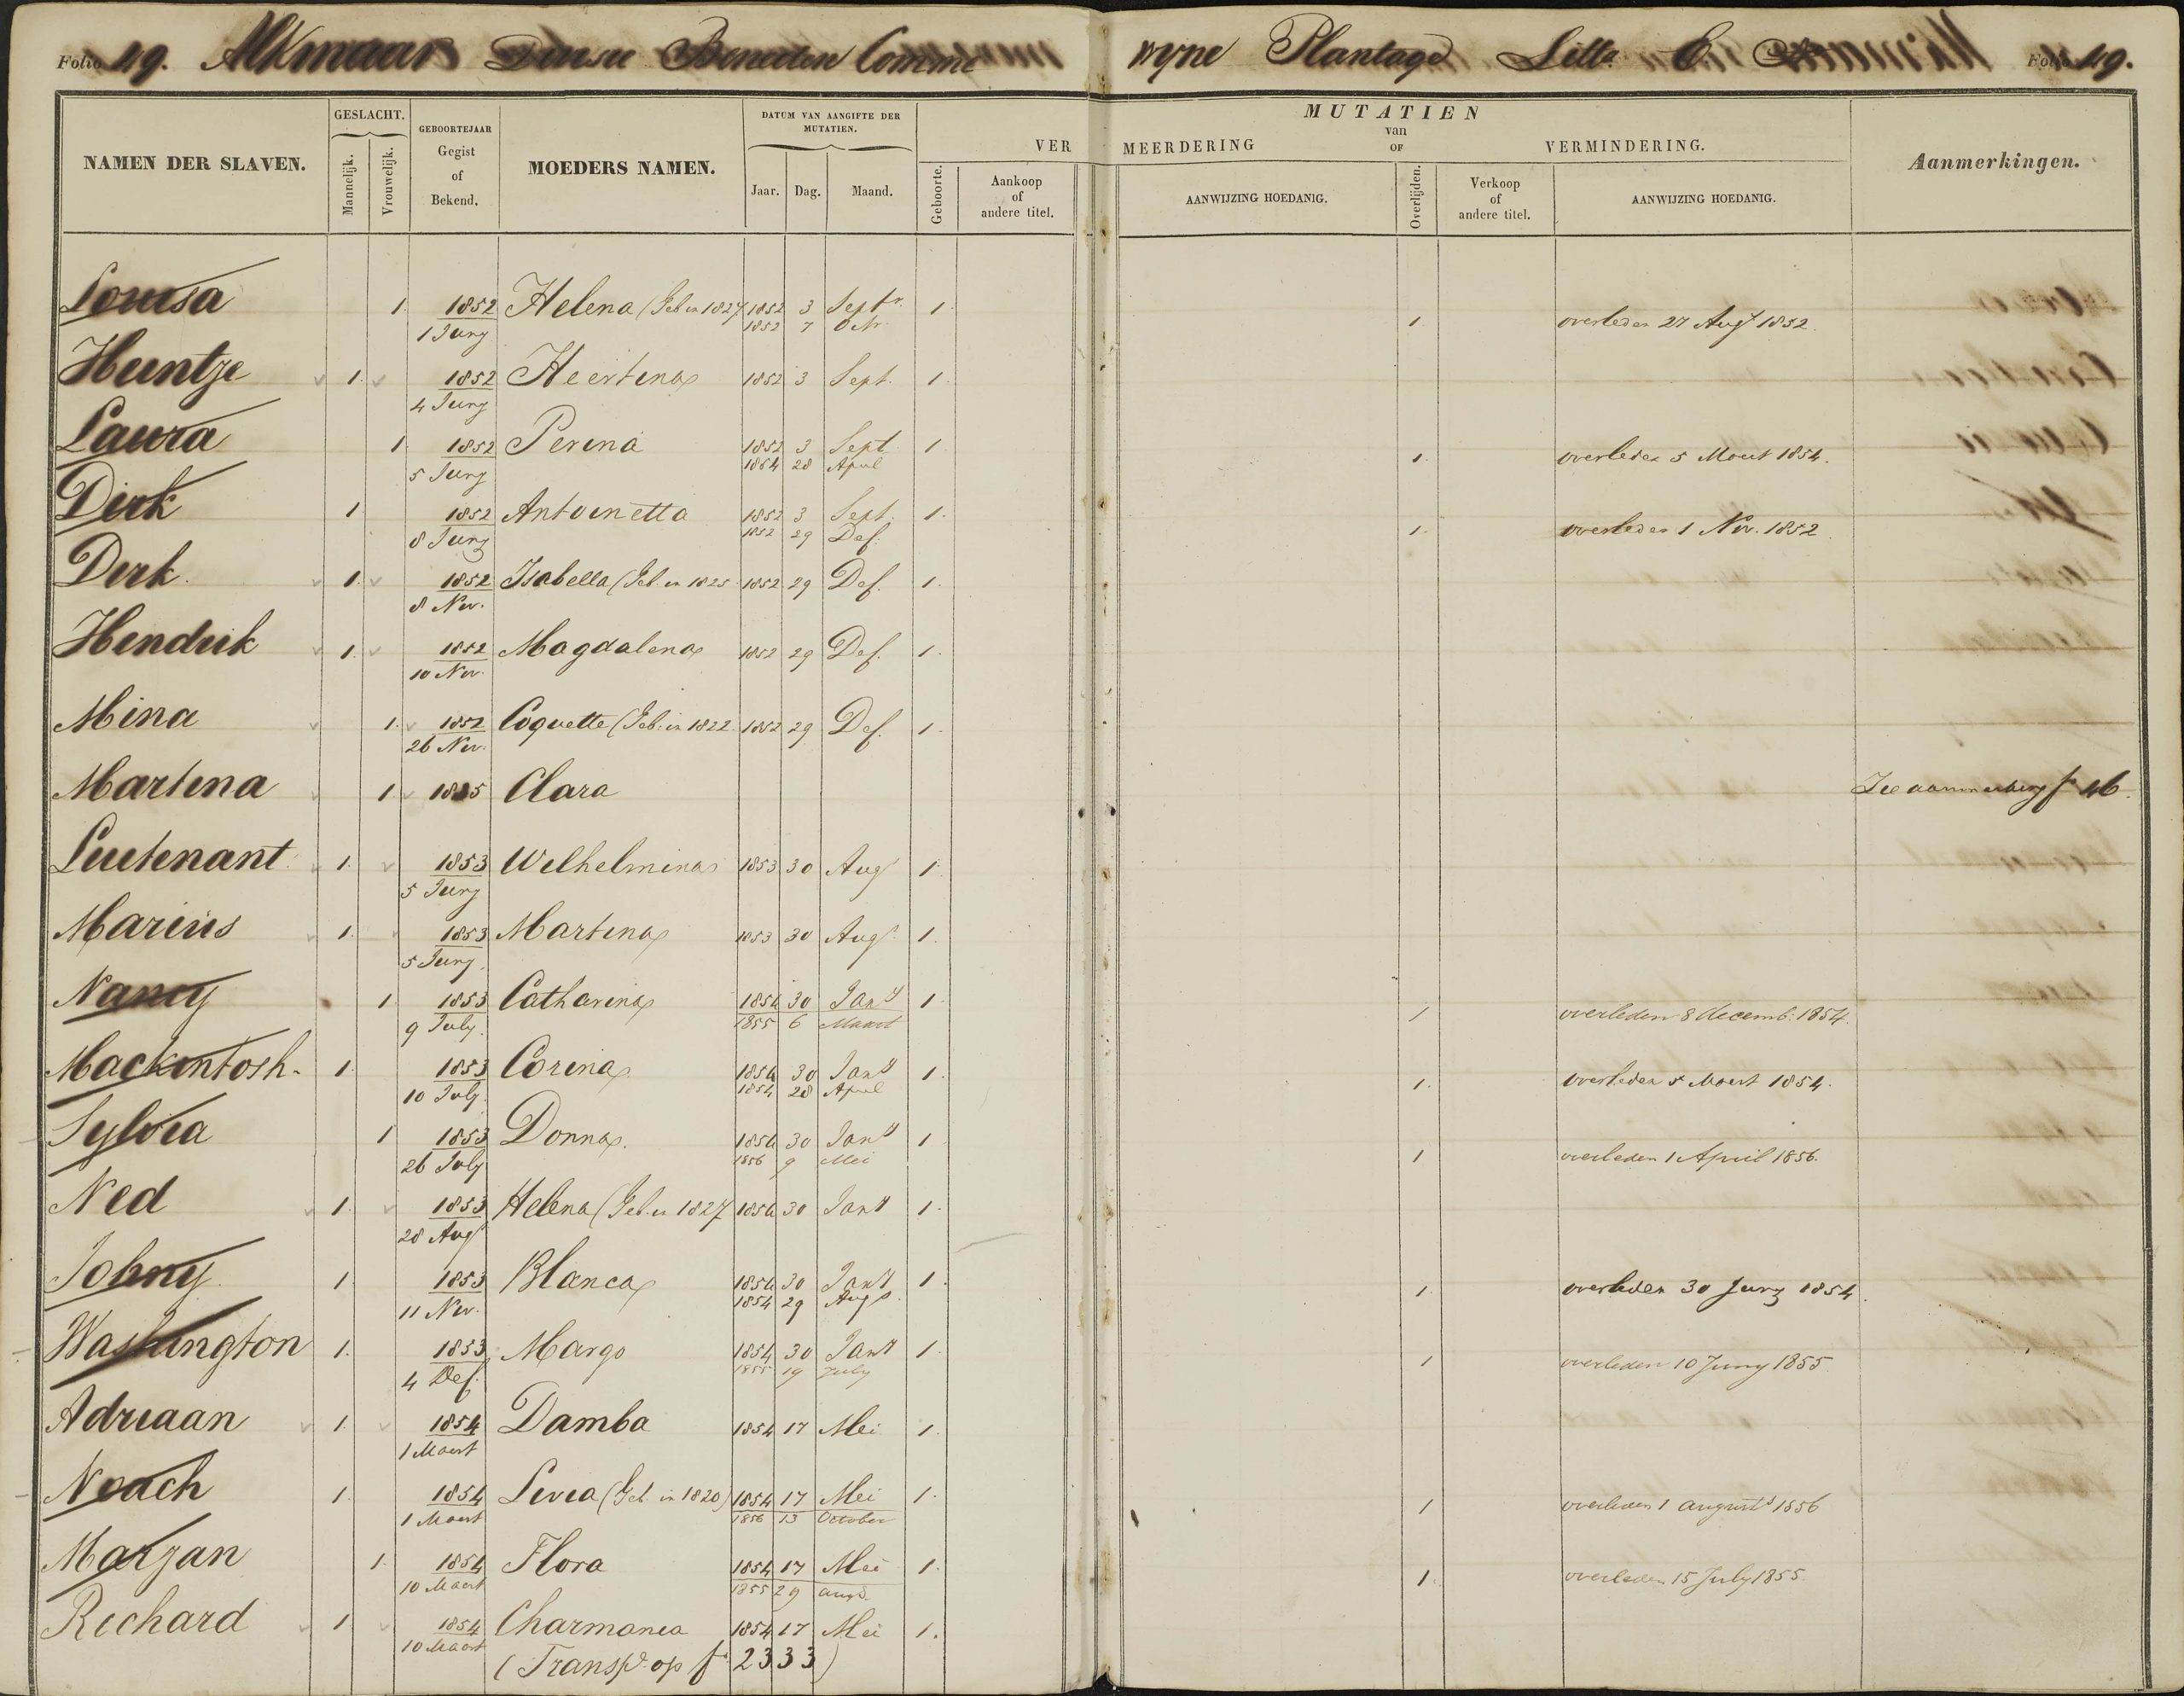 Folio 49. Alkmaar Divisie Beneden Comme wyne Plantage Litta C. Folio 49.
NAMEN DER SLAVEN. GESLACHT. Mannelijk. Vrouwelijk. GEBOORTEJAAR Gegist of Bekend. MOEDERS NAMEN. DATUM VAN AANGIFTE DER MUTATIEN. Jaar. Dag. Maand. MUTATIEN van VER MEERDERING OF VERMINDERING. Geboorte. Aankoop of andere titel. AANWIJZING HOEDANIG. Overlijden. Verkoop of andere titel. AANWIJZING HOEDANIG. Aanmerkingen.
Louisa 1 1852 Helena (Geb in 1827 1852 3 Septr. 1
1 Juny 1852 7 Octr 1 overleden 27 Augt 1852.
Heintje 1. 1852 Heertina 1852 3 Sept. 1
4 Juny
Laura 1 1852 Perina 1852 3 Sept 1
5 Juny 1854 28 April 1. overleden 5 Maart 1854.
Dirk 1 1852 Antoinetta 1852 3 Sept. 1.
8 Juny 1852 29 Dec. 1. overleden 1 Nov. 1852
Derk. 1. 1852 Isabella (Geb in 1825 1852 29 Dec. 1.
8 Nov.
Hendrik 1. 1852 Magdalena 1852 29 Dec. 1.
10 Nov.
Mina 1. 1852 Coquette (Geb: in 1822. 1852 29 Dec. 1.
26 Nov.
Martina 1 1825 Clara Zie aanmerking fo 46.
Luitenant 1. 1853 Wilhelmina 1853 30 Aug 1
5 Juny
Marius 1. 1853 Martina 1853 30 Aug 1.
5 Juny.
Nancy 1 1853 Catharina 1854 30 Jany 1
9 July. 1855 6 Maart 1 overleden 8 decemb: 1854.
Mackintosh. 1. 1853 Corina 1854 30 Jany 1.
10 July. 1854 28 April 1. overleden 5 Maart 1854.
Sylvia 1 1853 Donna. 1854 30 Jany 1
26 July 1856 9 Mei 1 overleden 1 April 1856.
Ned 1. 1853 Helena (Geb. in 1827 1854 30 Jany 1.
28 Aug
Johny 1 1853 Blanca 1854 30 Jany 1.
11 Nov. 1854 29 Augs. 1. overleden 30 Juny 1854.
Washington 1. 1853 Margo 1854 30 Jany 1.
4 Dec. 1855 19 July 1 overleden 10 Juny 1855
Adriaan 1. 1854 Damba 1854 17 Mei 1.
1 Maart
Noach 1. 1854 Livia (Geb. in 1820) 1854 17 Mei 1.
1 Maart 1856 13 October 1 overleden 1 augusts 1856
Marjan 1. 1854 Flora 1854 17 Mei 1.
10 Maart 1855 29 augs. 1. overleden 15 July 1855.
Richard 1 1854 Charmonia 1854 17 Mei 1.
10 Maart (Transpt. op fo 2333)